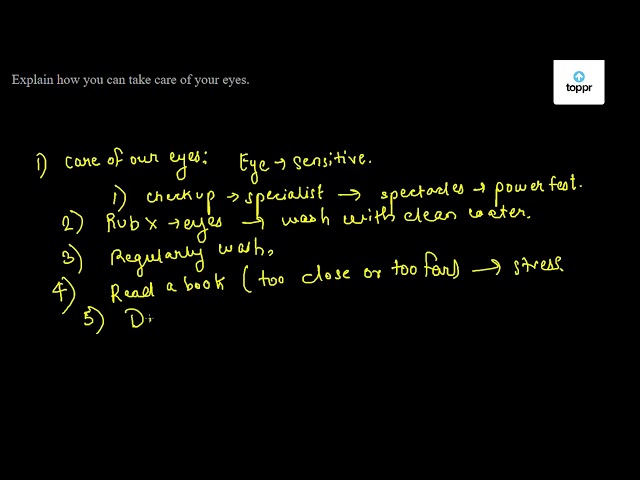 Explain how you can take care of your eyes.
toppr
1) Care of our eyes: Eye → sensitive.
1) checkup → specialist → spectacles → power test.
2) Rub x → eyes → wash with clean water.
3) Regularly wash.
4) Read a book (too close or too far) → stress.
5) Di